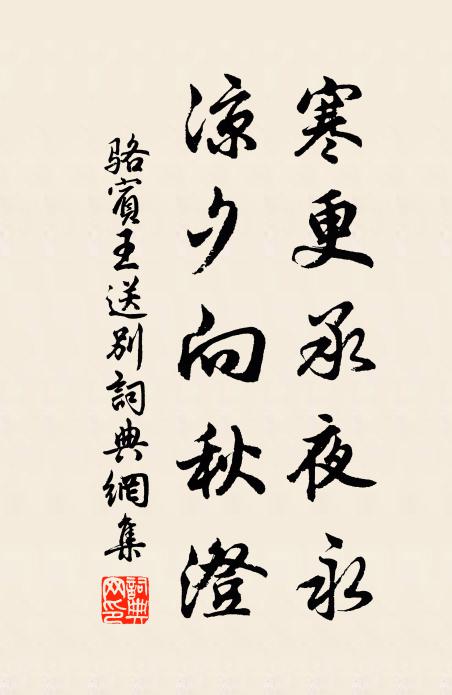 寒更承夜永
涼夕向秋澄
駱賓王送別詞典網集
詞典
网印